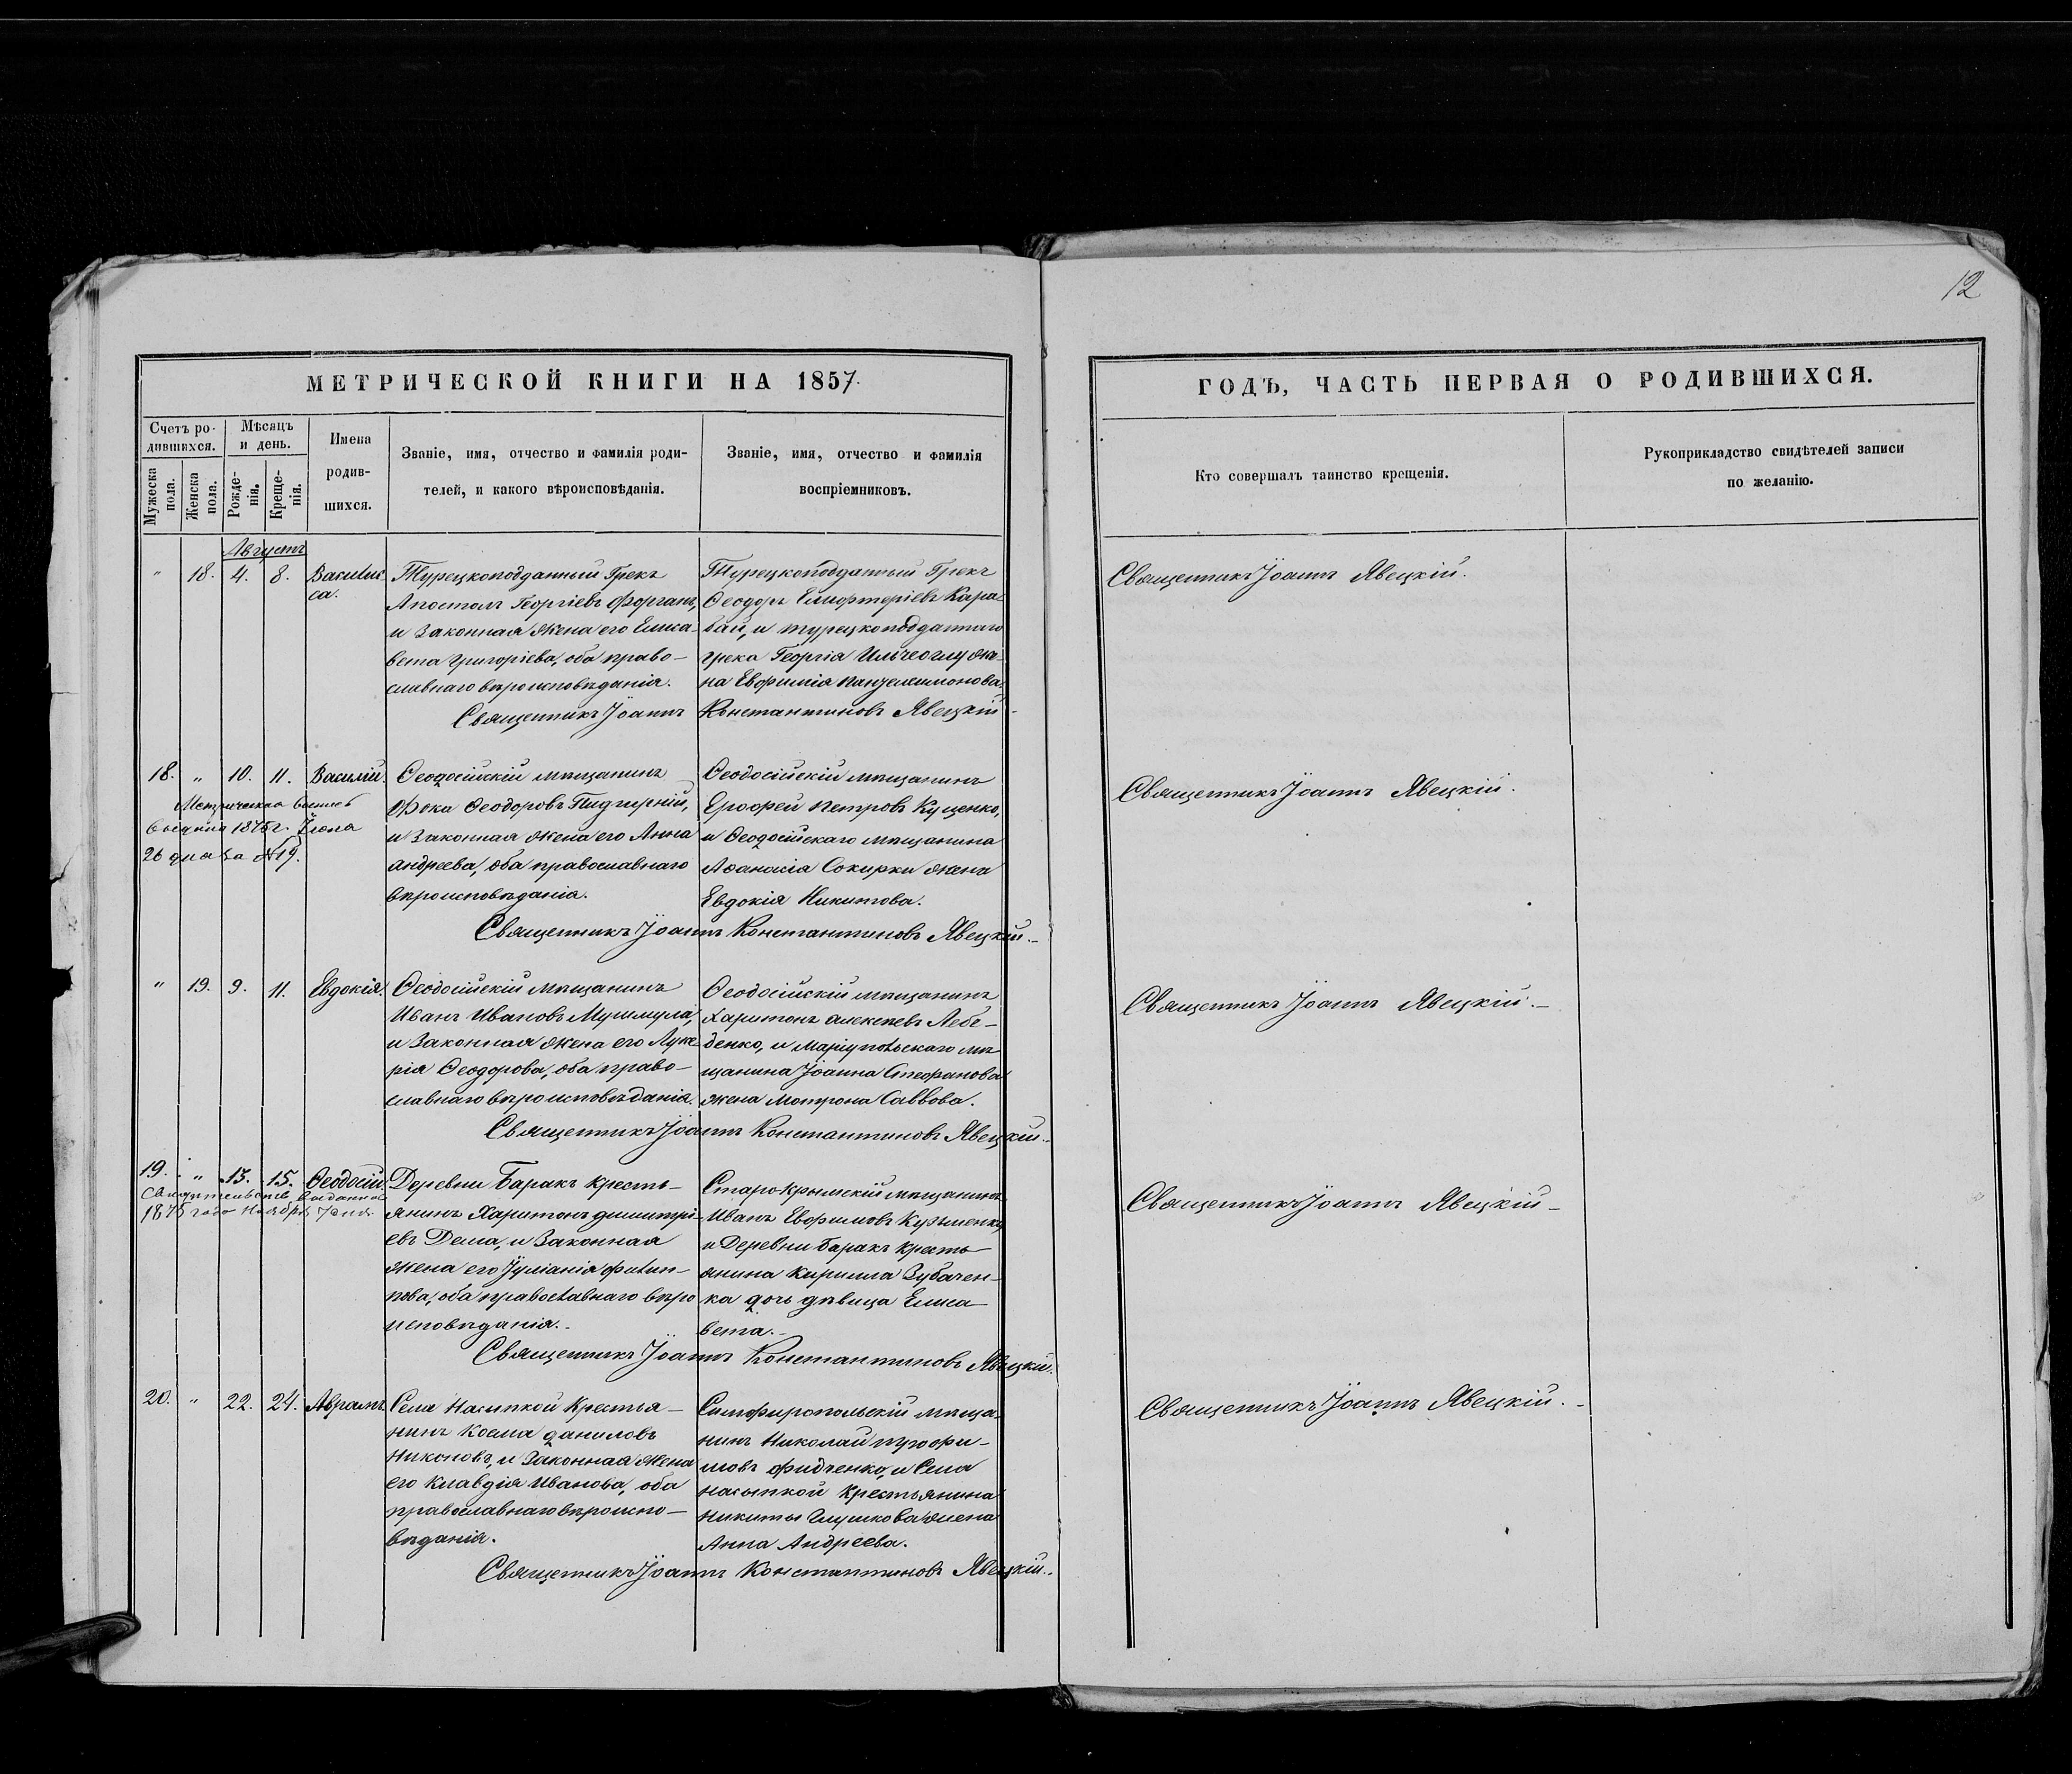 12
МЕТРИЧЕСКОЙ КНИГИ НА 1857.
ГОДЪ, ЧАСТЬ ПЕРВАЯ О РОДИВШИХСЯ.
Счетъ ро-
дившихся.
Мѣсяцъ
и день.
Мужеска пола.
Женска пола.
Рожде-
нія.
Креще-
нія.
Имена
родив-
шихся.
Званіе, имя, отчество и фамилія роди-
телей, и какого вѣроисповѣданія.
Званіе, имя, отчество и фамилія
воспріемниковъ.
Кто совершалъ таинство крещенія.
Рукоприкладство свидѣтелей записи
по желанію.
Августъ
" 18. 4. 8. Василис
са.
Турецкоподданный Грекъ
Апостолъ Георгіевъ Форганъ,
и Законная жена его Елиса-
вета Григоріева, оба право-
славнаго вѣроисповѣданія.
Турецкоподданный Грекъ
Ѳеодоръ Елифтеріевъ Кара-
бай, и турецкоподданаго
грека Георгія Ильчеоглу же-
на Евфимія Пантелимонова.
Священникъ Іоаннъ Константиновъ Явецкій
Священникъ Іоаннъ Явецкій.
18. " 10. 11. Василій.
Метрическая выпись
выдана 1875 г. Іюля
26 дня за №19.
Ѳеодосійскій мѣщанинъ
Фока Ѳеодоровъ Пидгирній,
и Законная жена его Анна
Андреева, оба православнаго
вѣроисповѣданія.
Ѳеодосійскій мѣщанинъ
Ерофей Петровъ Куценко,
и Ѳеодосійскаго мѣщанина
Аѳанасія Сокирки жена
Евдокія Никитова.
Священникъ Іоаннъ Константиновъ Явецкій.
Священникъ Іоаннъ Явецкій.
" 19. 9. 11. Евдокія.
Ѳеодосійскій мѣщанинъ
Иванъ Ивановъ Мушмула,
и Законная жена его Луке-
рія Ѳеодорова, оба право-
славнаго вѣроисповѣданія.
Ѳеодосійскій мѣщанинъ
Харитонъ Алексѣевъ Лебе-
денко, и Маріупольскаго мѣ
щанина Іоанна Стефанова
жена Мотрона Саввова.
Священникъ Іоаннъ Константиновъ Явецкій.
Священникъ Іоаннъ Явецкій.
19. " 13. 15. Ѳеодосій.
Свидѣтельство выданно
1875 года Ноября 7 дня.
Деревни Баракъ кресть-
янинъ Харитонъ Димитрі-
евъ Дема, и Законная
жена его Іуліанія Филип-
пова, оба православнаго вѣро
исповѣданія.
Старо-Крымскій мѣщанинъ
Иванъ Евфимовъ Кузьменко,
и Деревни Баракъ кресть-
янина Кирилла Зубачен-
ка дочь дѣвица Елиса
вета.
Священникъ Іоаннъ Константиновъ Явецкій.
Священникъ Іоаннъ Явецкій
20. " 22. 24. Аврамъ.
Села Насыпкой Крестья-
нинъ Косма Даниловъ
Никоновъ, и Законная жена
его Клавдія Иванова, оба
православнаго вѣроиспо-
вѣданія.
Симферопольскій мѣща-
нинъ Николай Трофи-
мовъ Фидченко, и Села
Насыпкой Крестьянина
Никиты Глушкова жена
Анна Андреева.
Священникъ Іоаннъ Константиновъ Явецкій.
Священникъ Іоаннъ Явецкій.